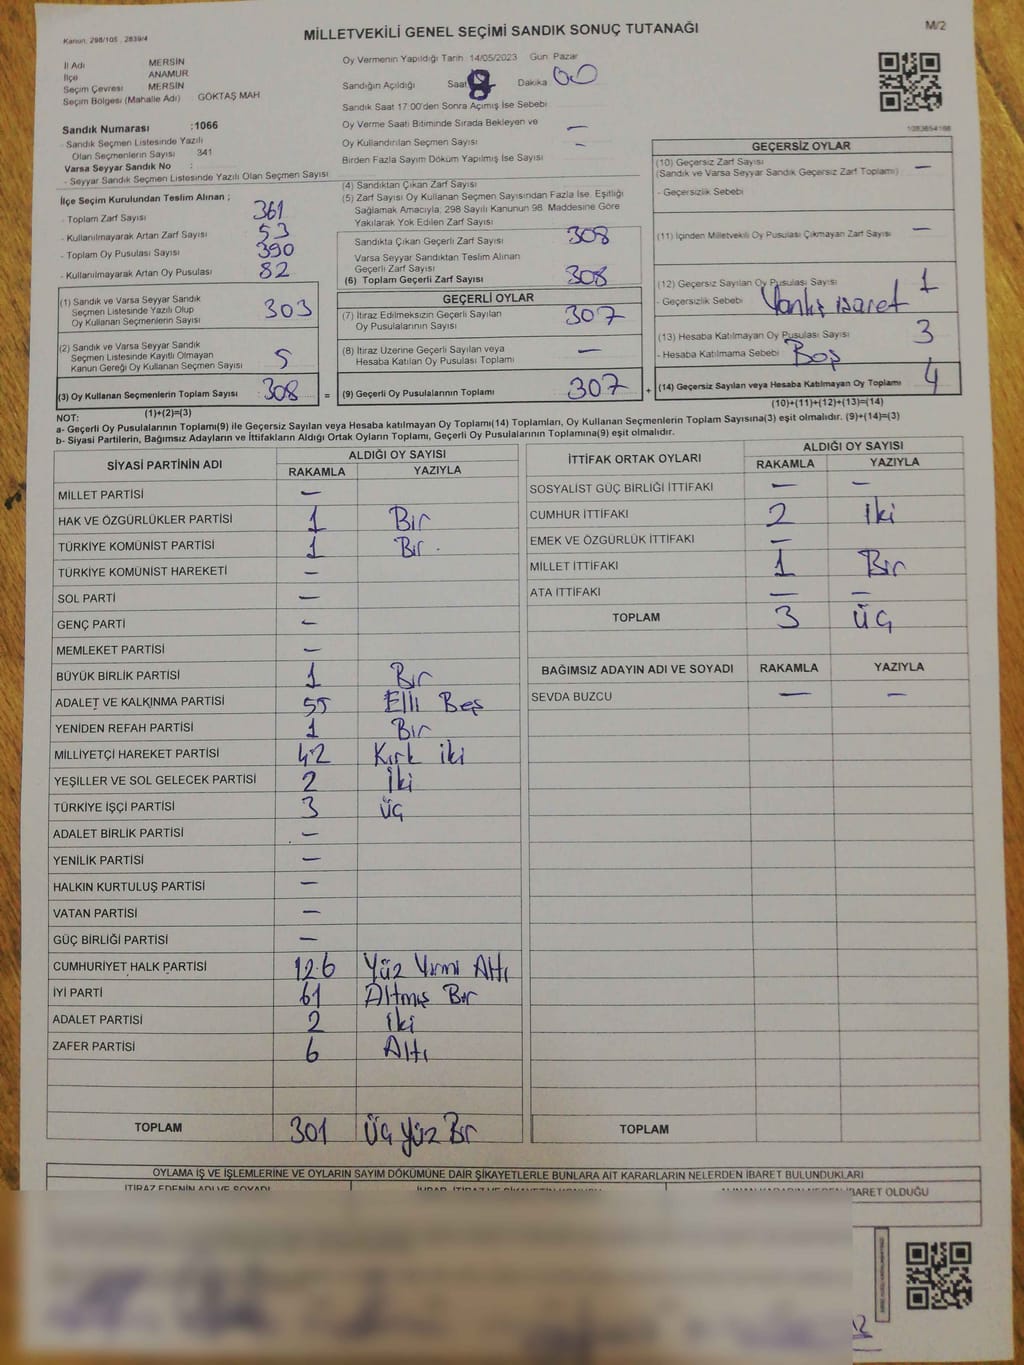 Kanun: 298/105 , 2839/4
MİLLETVEKİLİ GENEL SEÇİMİ SANDIK SONUÇ TUTANAĞI
M/2
İl Adı MERSİN
İlçe ANAMUR
Seçim Çevresi MERSİN
Seçim Bölgesi (Mahalle Adı) GÖKTAŞ MAH
Sandık Numarası :1066
- Sandık Seçmen Listesinde Yazılı
Olan Seçmenlerin Sayısı 341
Varsa Seyyar Sandık No :
- Seyyar Sandık Seçmen Listesinde Yazılı Olan Seçmen Sayısı
Oy Vermenin Yapıldığı Tarih 14/05/2023 Gün Pazar
Sandığın Açıldığı Saat 8 Dakika 00
Sandık Saat 17:00'den Sonra Açımış İse Sebebi
Oy Verme Saati Bitiminde Sırada Bekleyen ve —
Oy Kullandırılan Seçmen Sayısı –
Birden Fazla Sayım Döküm Yapılmış İse Sayısı
İlçe Seçim Kurulundan Teslim Alınan ;
- Toplam Zarf Sayısı 361
- Kullanılmayarak Artan Zarf Sayısı 53
- Toplam Oy Pusulası Sayısı 390
- Kullanılmayarak Artan Oy Pusulası 82
(1) Sandık ve Varsa Seyyar Sandık
Seçmen Listesinde Yazılı Olup
Oy Kullanan Seçmenlerin Sayısı 303
(2) Sandık ve Varsa Seyyar Sandık
Seçmen Listesinde Kayıtlı Olmayan
Kanun Gereği Oy Kullanan Seçmen Sayısı 5
(3) Oy Kullanan Seçmenlerin Toplam Sayısı 308 =
(1)+(2)=(3)
(4) Sandıktan Çıkan Zarf Sayısı
(5) Zarf Sayısı Oy Kullanan Seçmen Sayısından Fazla İse, Eşitliği
Sağlamak Amacıyla, 298 Sayılı Kanunun 98. Maddesine Göre
Yakılarak Yok Edilen Zarf Sayısı
Sandıkta Çıkan Geçerli Zarf Sayısı 308
Varsa Seyyar Sandıktan Teslim Alınan
Geçerli Zarf Sayısı
(6) Toplam Geçerli Zarf Sayısı 308
GEÇERLİ OYLAR
(7) İtiraz Edilmeksizin Geçerli Sayılan
Oy Pusulalarının Sayısı 307
(8) İtiraz Üzerine Geçerli Sayılan veya
Hesaba Katılan Oy Pusulası Toplamı —
(9) Geçerli Oy Pusulalarının Toplamı 307 +
GEÇERSİZ OYLAR
(10) Geçersiz Zarf Sayısı
(Sandık ve Varsa Seyyar Sandık Geçersiz Zarf Toplamı) —
- Geçersizlik Sebebi
(11) İçinden Milletvekili Oy Pusulası Çıkmayan Zarf Sayısı —
(12) Geçersiz Sayılan Oy Pusulası Sayısı 1
- Geçersizlik Sebebi Yanlış işaret
(13) Hesaba Katılmayan Oy Pusulası Sayısı 3
- Hesaba Katılmama Sebebi Boş
(14) Geçersiz Sayılan veya Hesaba Katılmayan Oy Toplamı 4
(10)+(11)+(12)+(13)=(14)
NOT:
a- Geçerli Oy Pusulalarının Toplamı(9) ile Geçersiz Sayılan veya Hesaba katılmayan Oy Toplamı(14) Toplamları, Oy Kullanan Seçmenlerin Toplam Sayısına(3) eşit olmalıdır. (9)+(14)=(3)
b- Siyasi Partilerin, Bağımsız Adayların ve İttifakların Aldığı Ortak Oyların Toplamı, Geçerli Oy Pusulalarının Toplamına(9) eşit olmalıdır.
SİYASİ PARTİNİN ADI ALDIĞI OY SAYISI
RAKAMLA YAZIYLA
MİLLET PARTİSİ —
HAK VE ÖZGÜRLÜKLER PARTİSİ 1 Bir
TÜRKİYE KOMÜNİST PARTİSİ 1 Bir .
TÜRKİYE KOMÜNİST HAREKETİ —
SOL PARTİ —
GENÇ PARTİ —
MEMLEKET PARTİSİ —
BÜYÜK BİRLİK PARTİSİ 1 Bir
ADALET VE KALKINMA PARTİSİ 55 Elli Beş
YENİDEN REFAH PARTİSİ 1 Bir
MİLLİYETÇİ HAREKET PARTİSİ 42 Kırk iki
YEŞİLLER VE SOL GELECEK PARTİSİ 2 İki
TÜRKİYE İŞÇİ PARTİSİ 3 Üç
ADALET BİRLİK PARTİSİ —
YENİLİK PARTİSİ —
HALKIN KURTULUŞ PARTİSİ —
VATAN PARTİSİ —
GÜÇ BİRLİĞİ PARTİSİ —
CUMHURİYET HALK PARTİSİ 126 Yüz Yirmi Altı
İYİ PARTİ 61 Altmış Bir
ADALET PARTİSİ 2 İki
ZAFER PARTİSİ 6 Altı
TOPLAM 301 Üç Yüz Bir
İTTİFAK ORTAK OYLARI ALDIĞI OY SAYISI
RAKAMLA YAZIYLA
SOSYALİST GÜÇ BİRLİĞİ İTTİFAKI — —
CUMHUR İTTİFAKI 2 İki
EMEK VE ÖZGÜRLÜK İTTİFAKI —
MİLLET İTTİFAKI 1 Bir
ATA İTTİFAKI — —
TOPLAM 3 Üç
BAĞIMSIZ ADAYIN ADI VE SOYADI RAKAMLA YAZIYLA
SEVDA BUZCU — —
TOPLAM
OYLAMA İŞ VE İŞLEMLERİNE VE OYLARIN SAYIM DÖKÜMÜNE DAİR ŞİKAYETLERLE BUNLARA AİT KARARLARIN NELERDEN İBARET BULUNDUKLARI
İTİRAZ EDENİN ADI VE SOYADI
İBARET OLDUĞU